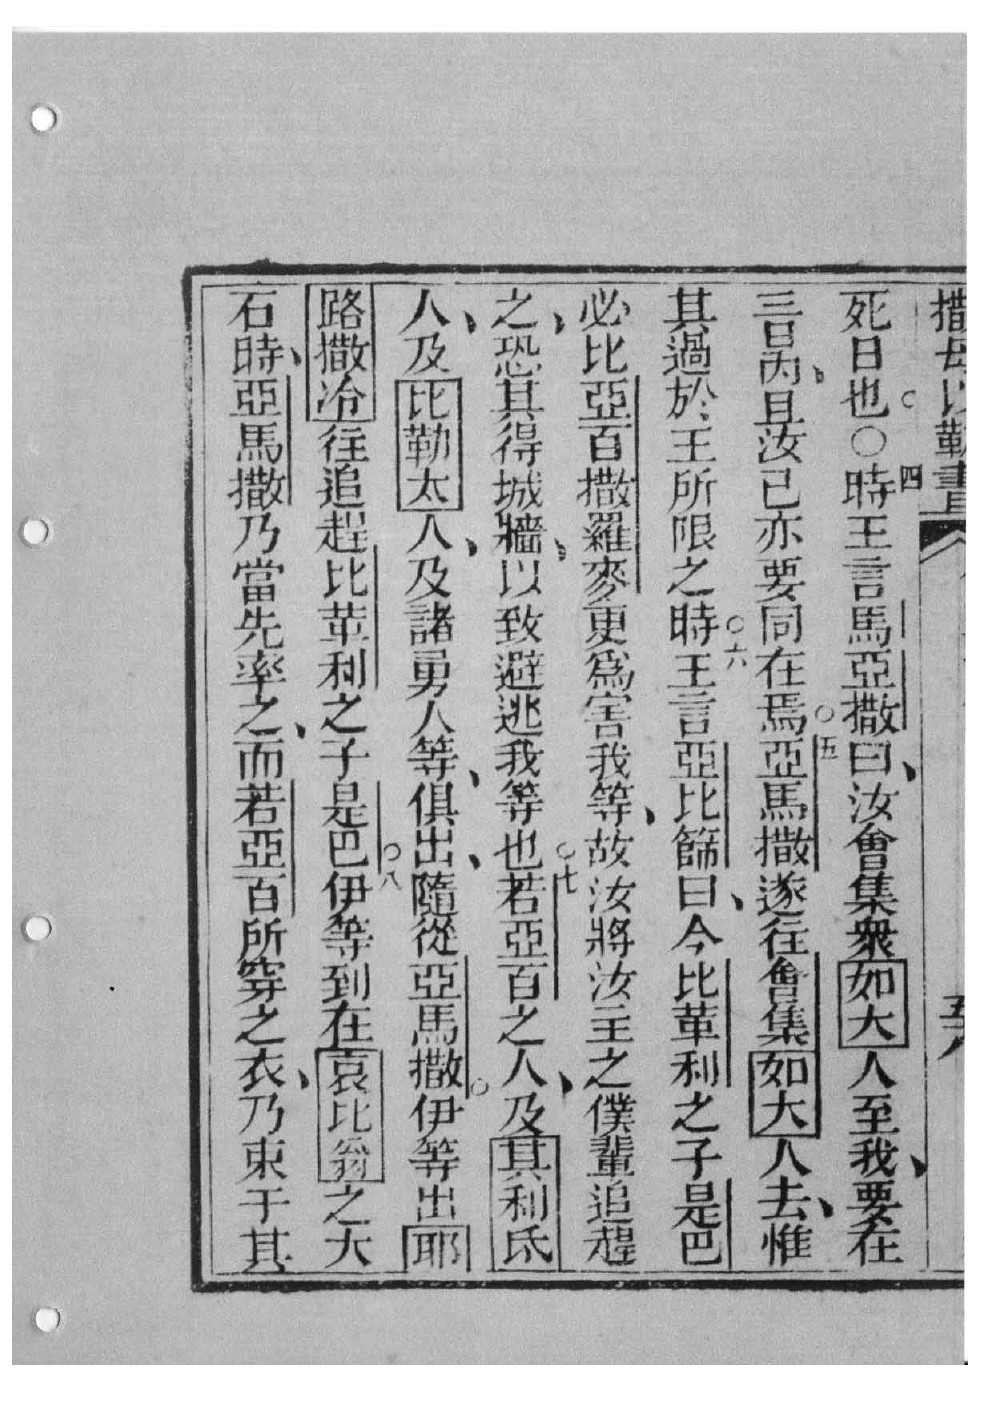 撒母以勒書
死日也○時王言馬亞撒曰汝會集衆如大人至我要在
三日內且汝已亦要同在焉亞馬撒遂往會集如大人去惟
其過於王所限之時王言亞比篩曰今比革利之子是巴
必比亞百撒羅麥更爲害我等故汝將汝主之僕輩追趕
之恐其得城牆以致避逃我等也若亞百之人及其利氐
人及比勒太人及諸勇人等俱出隨從亞馬撒伊等出耶
路撒冷往追趕比革利之子是巴伊等到在哀比翁之大
石時亞馬撒乃當先率之而若亞百所穿之衣乃束于其
四
○五
○六
○七
○八